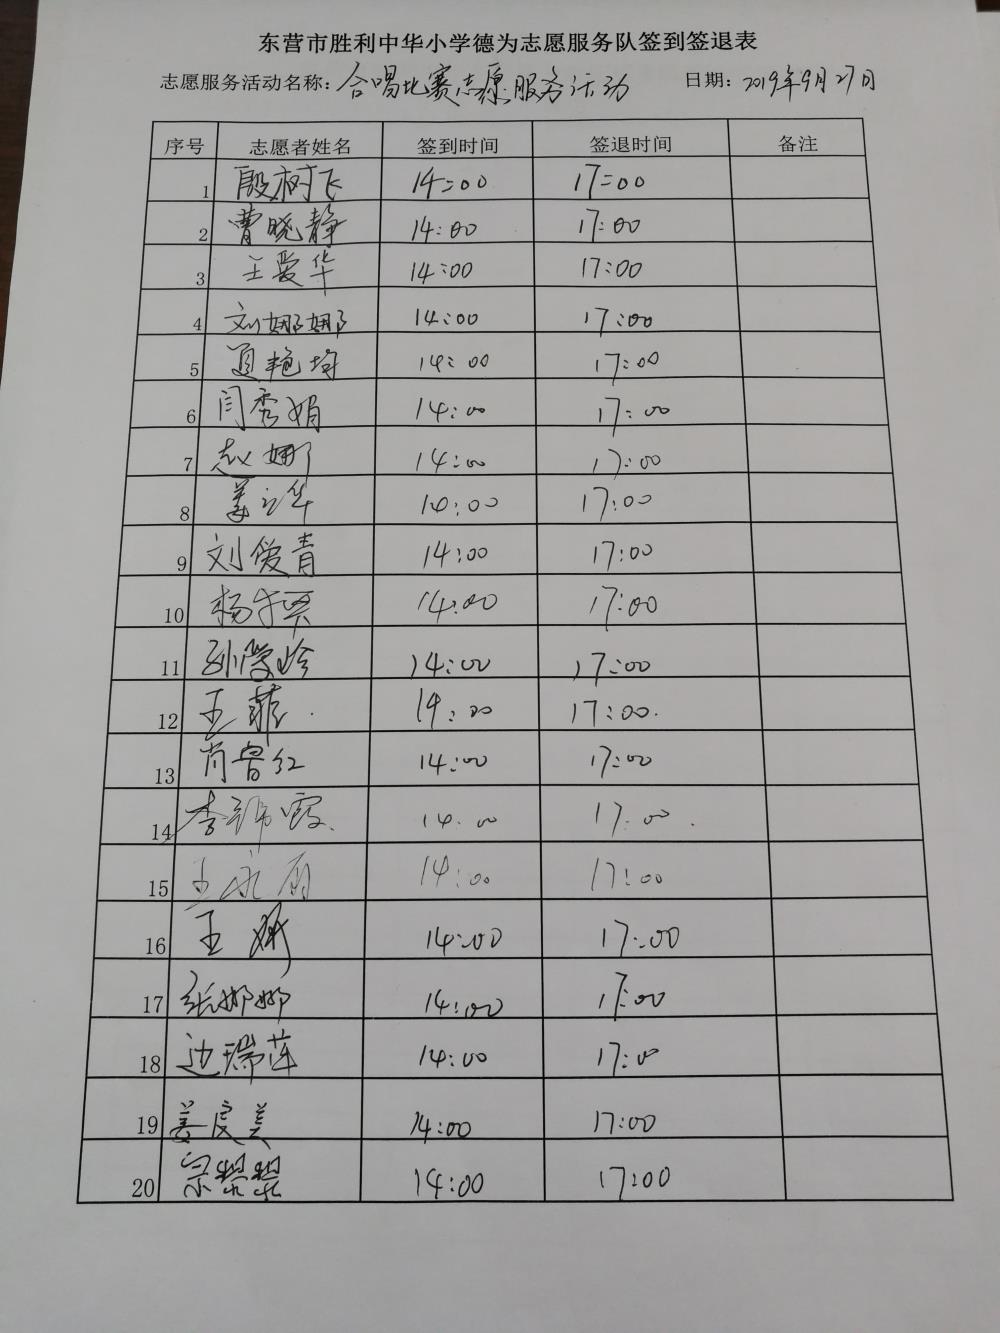 东营市胜利中华小学德为志愿服务队签到签退表
志愿服务活动名称：合唱比赛志愿服务活动 日期：2019年9月27日
序号 志愿者姓名 签到时间 签退时间 备注
1 殷树飞 14:00 17:00
2 曹晓静 14:00 17:00
3 王爱华 14:00 17:00
4 刘娜娜 14:00 17:00
5 14:00 17:00
6 闫秀娟 14:00 17:00
7 赵娜 14:00 17:00
8 姜立华 14:00 17:00
9 刘爱青 14:00 17:00
10 杨 14:00 17:00
11 孙学玲 14:00 17:00
12 王菲. 14:00 17:00.
13 肖鲁红 14:00 17:00
14 李 霞. 14:00 17:00.
15 王永 14:00 17:00
16 王 14:00 17:00
17 张娜娜 14:00 17:00
18 边瑞莲 14:00 17:00
19 姜 美 14:00 17:00
20 宗 14:00 17:00